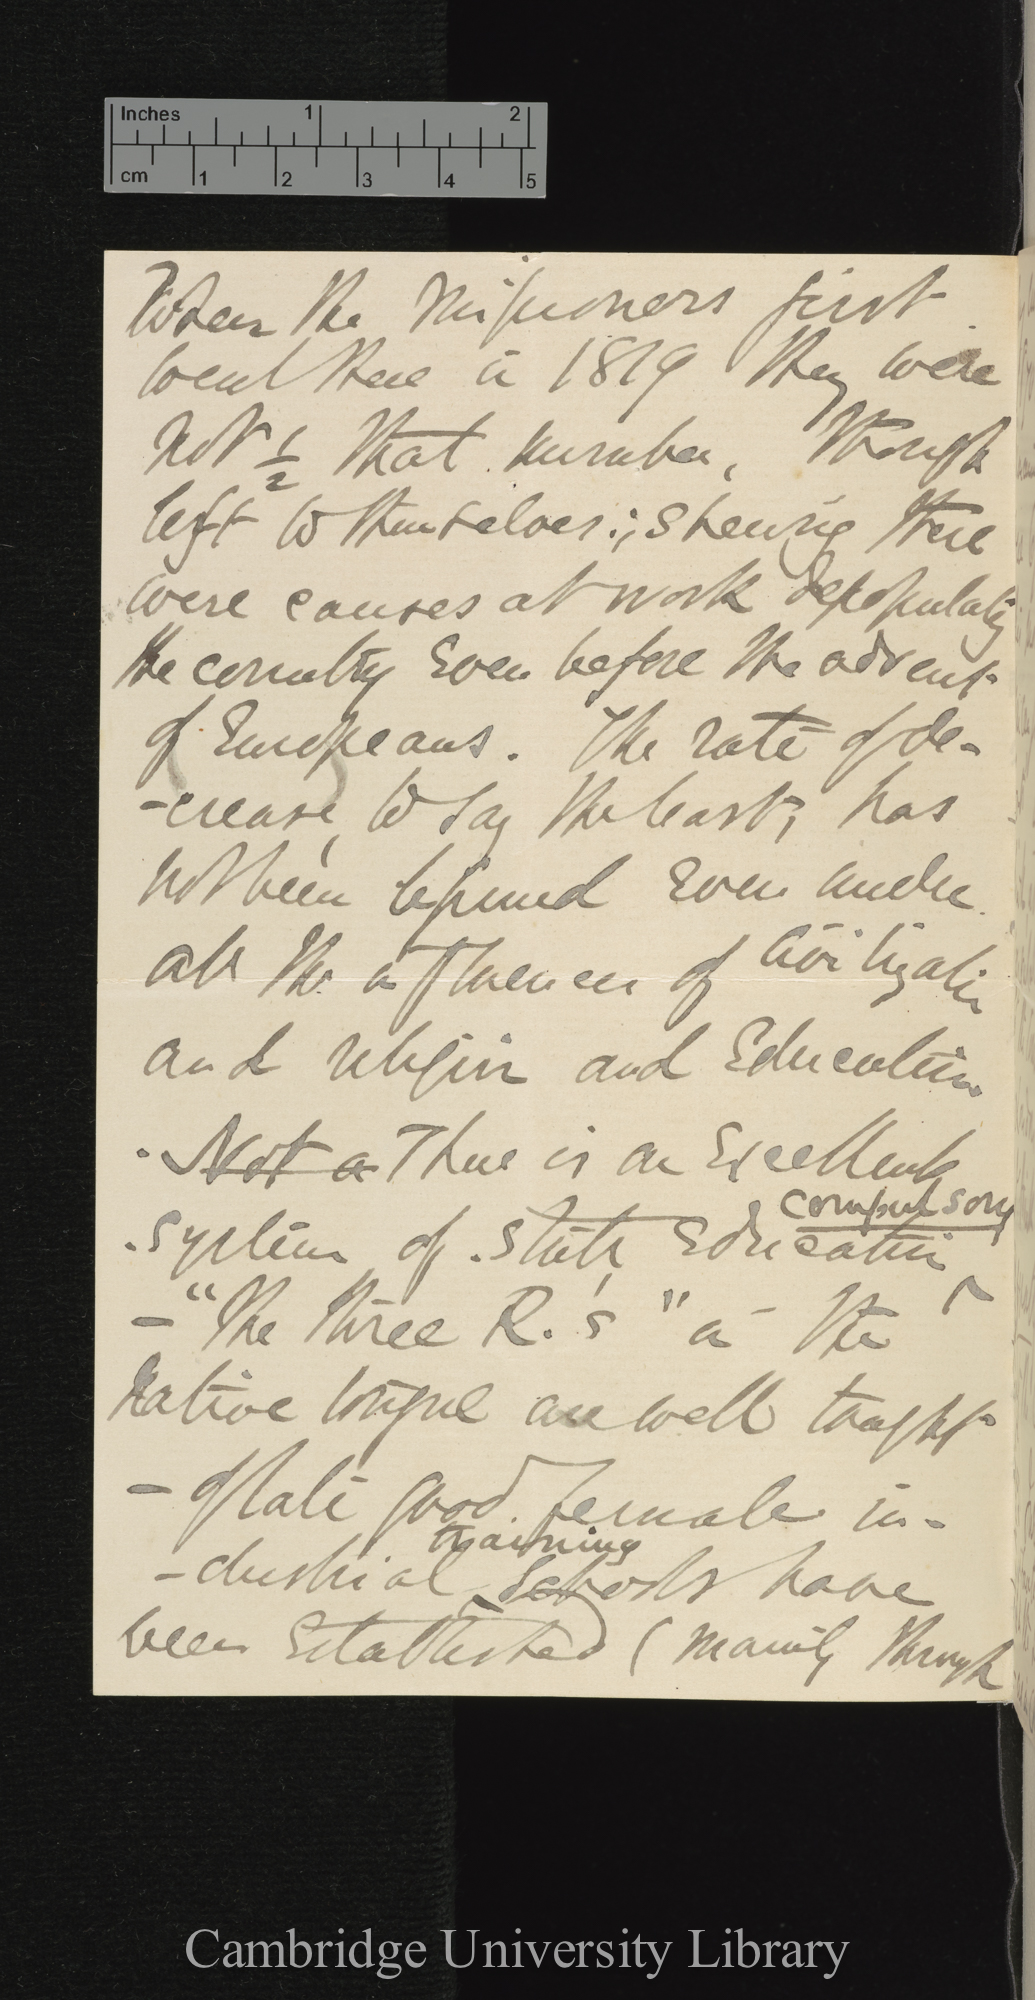 Inches 1 2
cm 1 2 3 4 5
When the Missioners first
went there in 1819 they were
not ½ that number, though
left to themselves:; shewing there
were causes at work depopulating
the country even before the advent
of Europeans. The rate of de-
-crease, to say the least, has
not been lessened even under
all the influences of civilization
and religion and Education
. Not a There is an Excellent
compulsory
system of State Education
- "the three R.'s" in the
native tongue are well taught
- of late good female in-
training
-dustrial Schools have
been Established (mainly through
Cambridge University Library